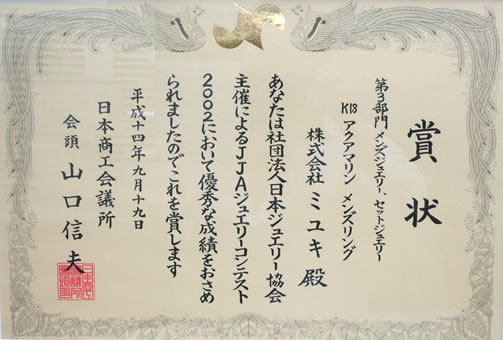 賞状
第3部門 メンズジュエリー、セットジュエリー
K18 アクアマリン メンズリング
株式会社 ミユキ 殿
あなたは社団法人日本ジュエリー協会
主催によるJJAジュエリーコンテスト
2002において優秀な成績をおさめ
られましたのでこれを賞します
平成十四年九月十九日
日本商工会議所
会頭 山口信夫